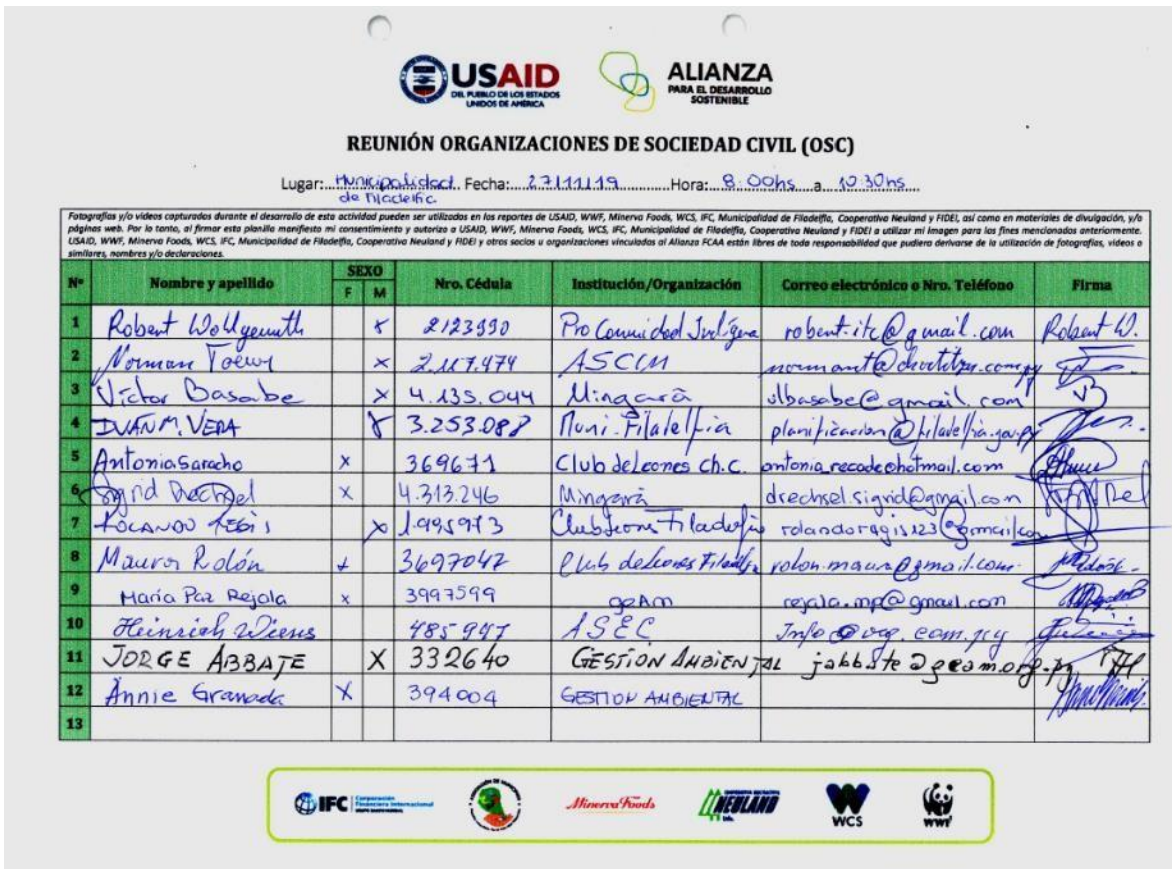 USAID
DEL PUEBLO DE LOS ESTADOS
UNIDOS DE AMÉRICA
ALIANZA
PARA EL DESARROLLO
SOSTENIBLE
REUNIÓN ORGANIZACIONES DE SOCIEDAD CIVIL (OSC)
Lugar: Municipalidad de Filadelfia Fecha: 27/11/19 Hora: 8:00hs a 10:30hs
Fotografías y/o videos capturados durante el desarrollo de esta actividad pueden ser utilizados en los reportes de USAID, WWF, Minerva Foods, WCS, IFC, Municipalidad de Filadelfia, Cooperativa Neuland y FIDEI, así como en materiales de divulgación, y/o
páginas web. Por lo tanto, al firmar esta planilla manifiesto mi consentimiento y autorizo a USAID, WWF, Minerva Foods, WCS, IFC, Municipalidad de Filadelfia, Cooperativa Neuland y FIDEI a utilizar mi imagen para los fines mencionados anteriormente.
USAID, WWF, Minerva Foods, WCS, IFC, Municipalidad de Filadelfia, Cooperativa Neuland y FIDEI y otros socios u organizaciones vinculados al Alianza FCAA están libres de toda responsabilidad que pudiera derivarse de la utilización de fotografías, videos o
similares, nombres y/o declaraciones.
Nº Nombre y apellido SEXO F M Nro. Cédula Institución/Organización Correo electrónico o Nro. Teléfono Firma
1 Robert Wohlgemuth x 2123990 Pro Comunidad Indígena robert.itc@gmail.com Robert W.
2 Norman Toews x 2.117.474 ASCIM
3 Víctor Basabe x 4.135.044 Mingarã vlbasabe@gmail.com VB
4 IVÁN M. VERA x 3.253.088 Muni. Filadelfia planificacion@filadelfia.gov.py
5 Antonia Saracho x 369671 Club de Leones ch.c. antonia_recode@hotmail.com
6 Sigrid Drechsel x 4.313.246 Mingarã drechsel.sigrid@gmail.com
7 ROLANDO REGIS x 1.995973 Club Leones Filadelfia rolandoregis123@gmail.com
8 Maura Rolón x 3697047 Club de Leones Filadelfia rolon.maura@gmail.com
9 María Paz Rejala x 3997599 geAm rejala.mp@gmail.com
10 Heinrich Wiens 485947 ASEC
11 JORGE ABBATE X 332640 GESTION AMBIENTAL jabbate@geam.org.py
12 Annie Granada X 394004 GESTION AMBIENTAL
13
IFC Corporación
Financiera Internacional
Minerva Foods
NEULAND
WCS
WWF